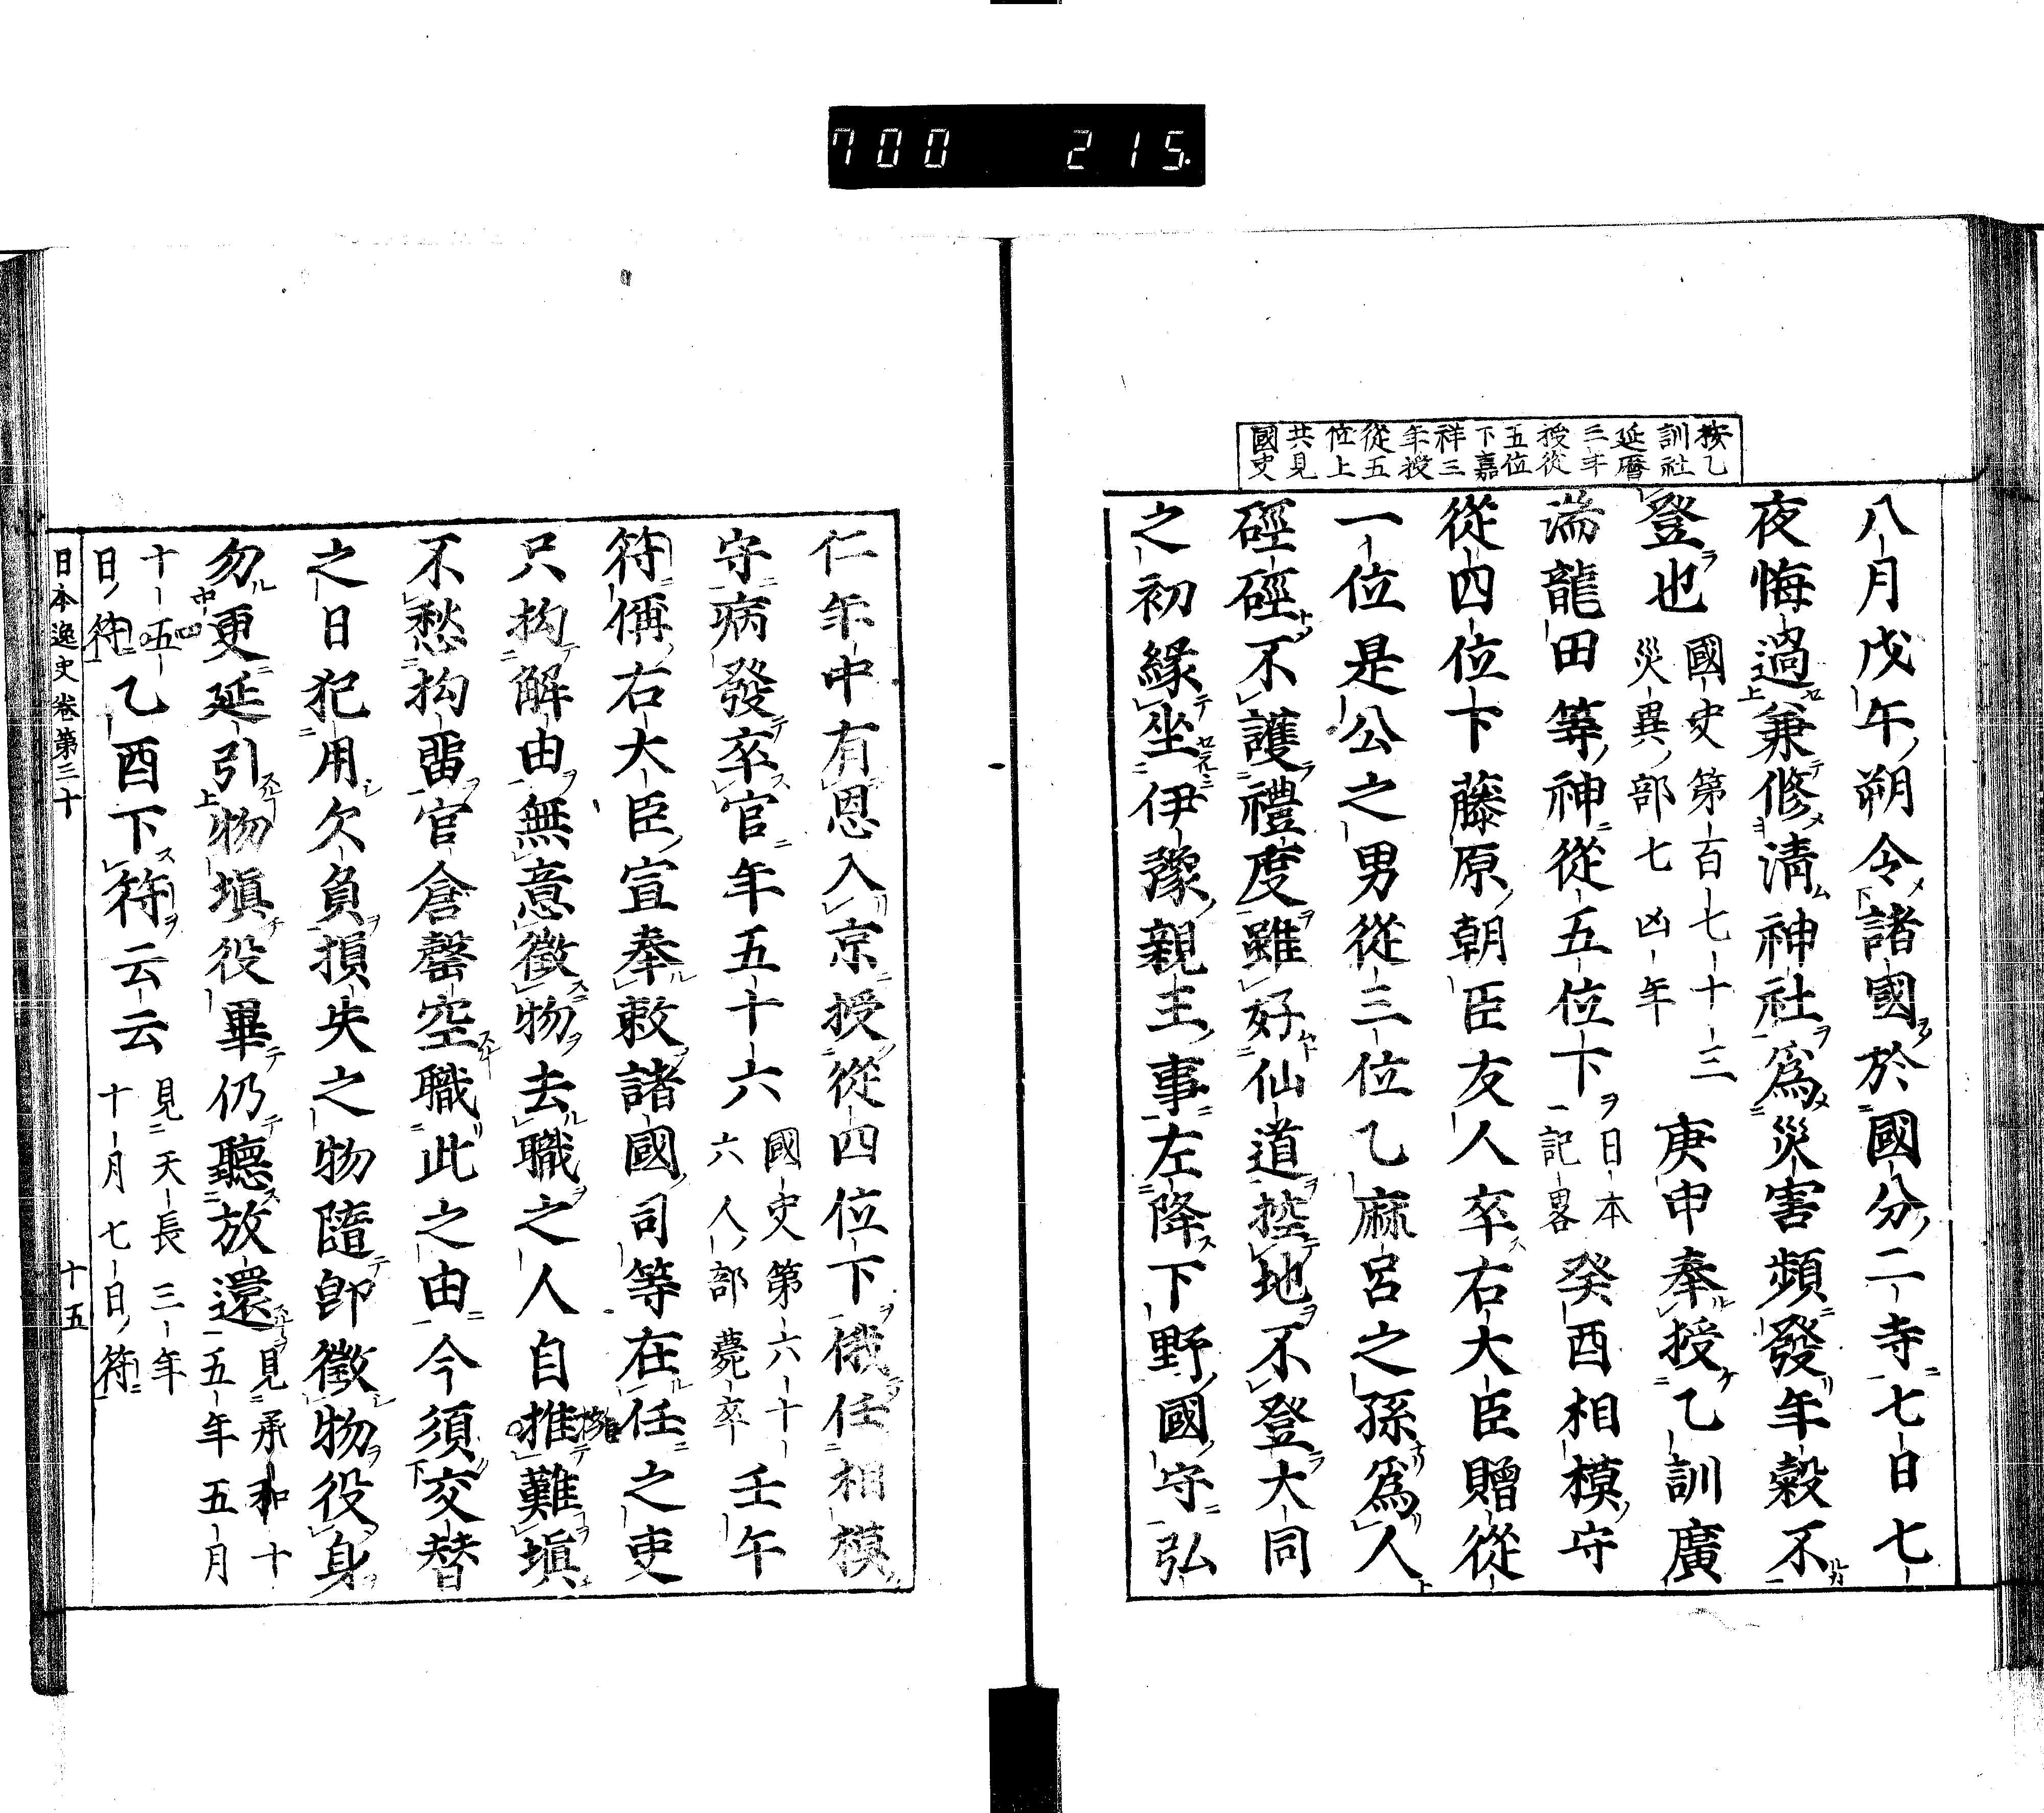 700 215.
按乙
訓社
延暦
三年
授從
五位
下嘉
祥三
年授
從五
位上
共見
國史
八月戊午朔令諸國於國分二寺七日七
夜悔過兼修淸神社爲災害頻發年穀不
登也國史第百七十三
災異部七凶年
庚申奉授乙訓廣
湍龍田等神從五位下日本
記畧
癸酉相模守
從四位下藤原朝臣友人卒右大臣贈從
一位是公之男從三位乙麻呂之孫爲人
硜硜不護禮度雖好仙道控地不登大同
之初緣坐伊豫親王事左降下野國守弘
仁年中有恩入京授從四位下俄任相模
守病發卒官年五十六國史第六十
六人部薨卒
壬午
符偁右大臣宣奉敕諸國司等在任之吏
只拘解由無意徵物去職之人自推難塡
不愁拘畱官倉罄空職此之由今須交替
之日犯用欠負損失之物隨卽徵物役身
勿更延引物塡役畢仍聽放還見承和十
五年五月
十五
日符
乙酉下符云云見天長三年
十月七日符
日本逸史卷第三十 十五